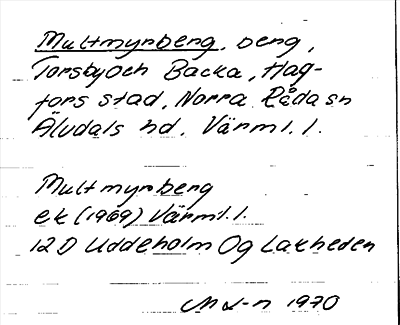 Multmyrberg, berg,
Torsby och Backa, Hag-
fors stad, Norra Råda sn
Älvdals hd. Värml. l.
Multmyrberg
ek (1969) Värml. l.
12 D Uddeholm Og Lakheden
M L-n 1970